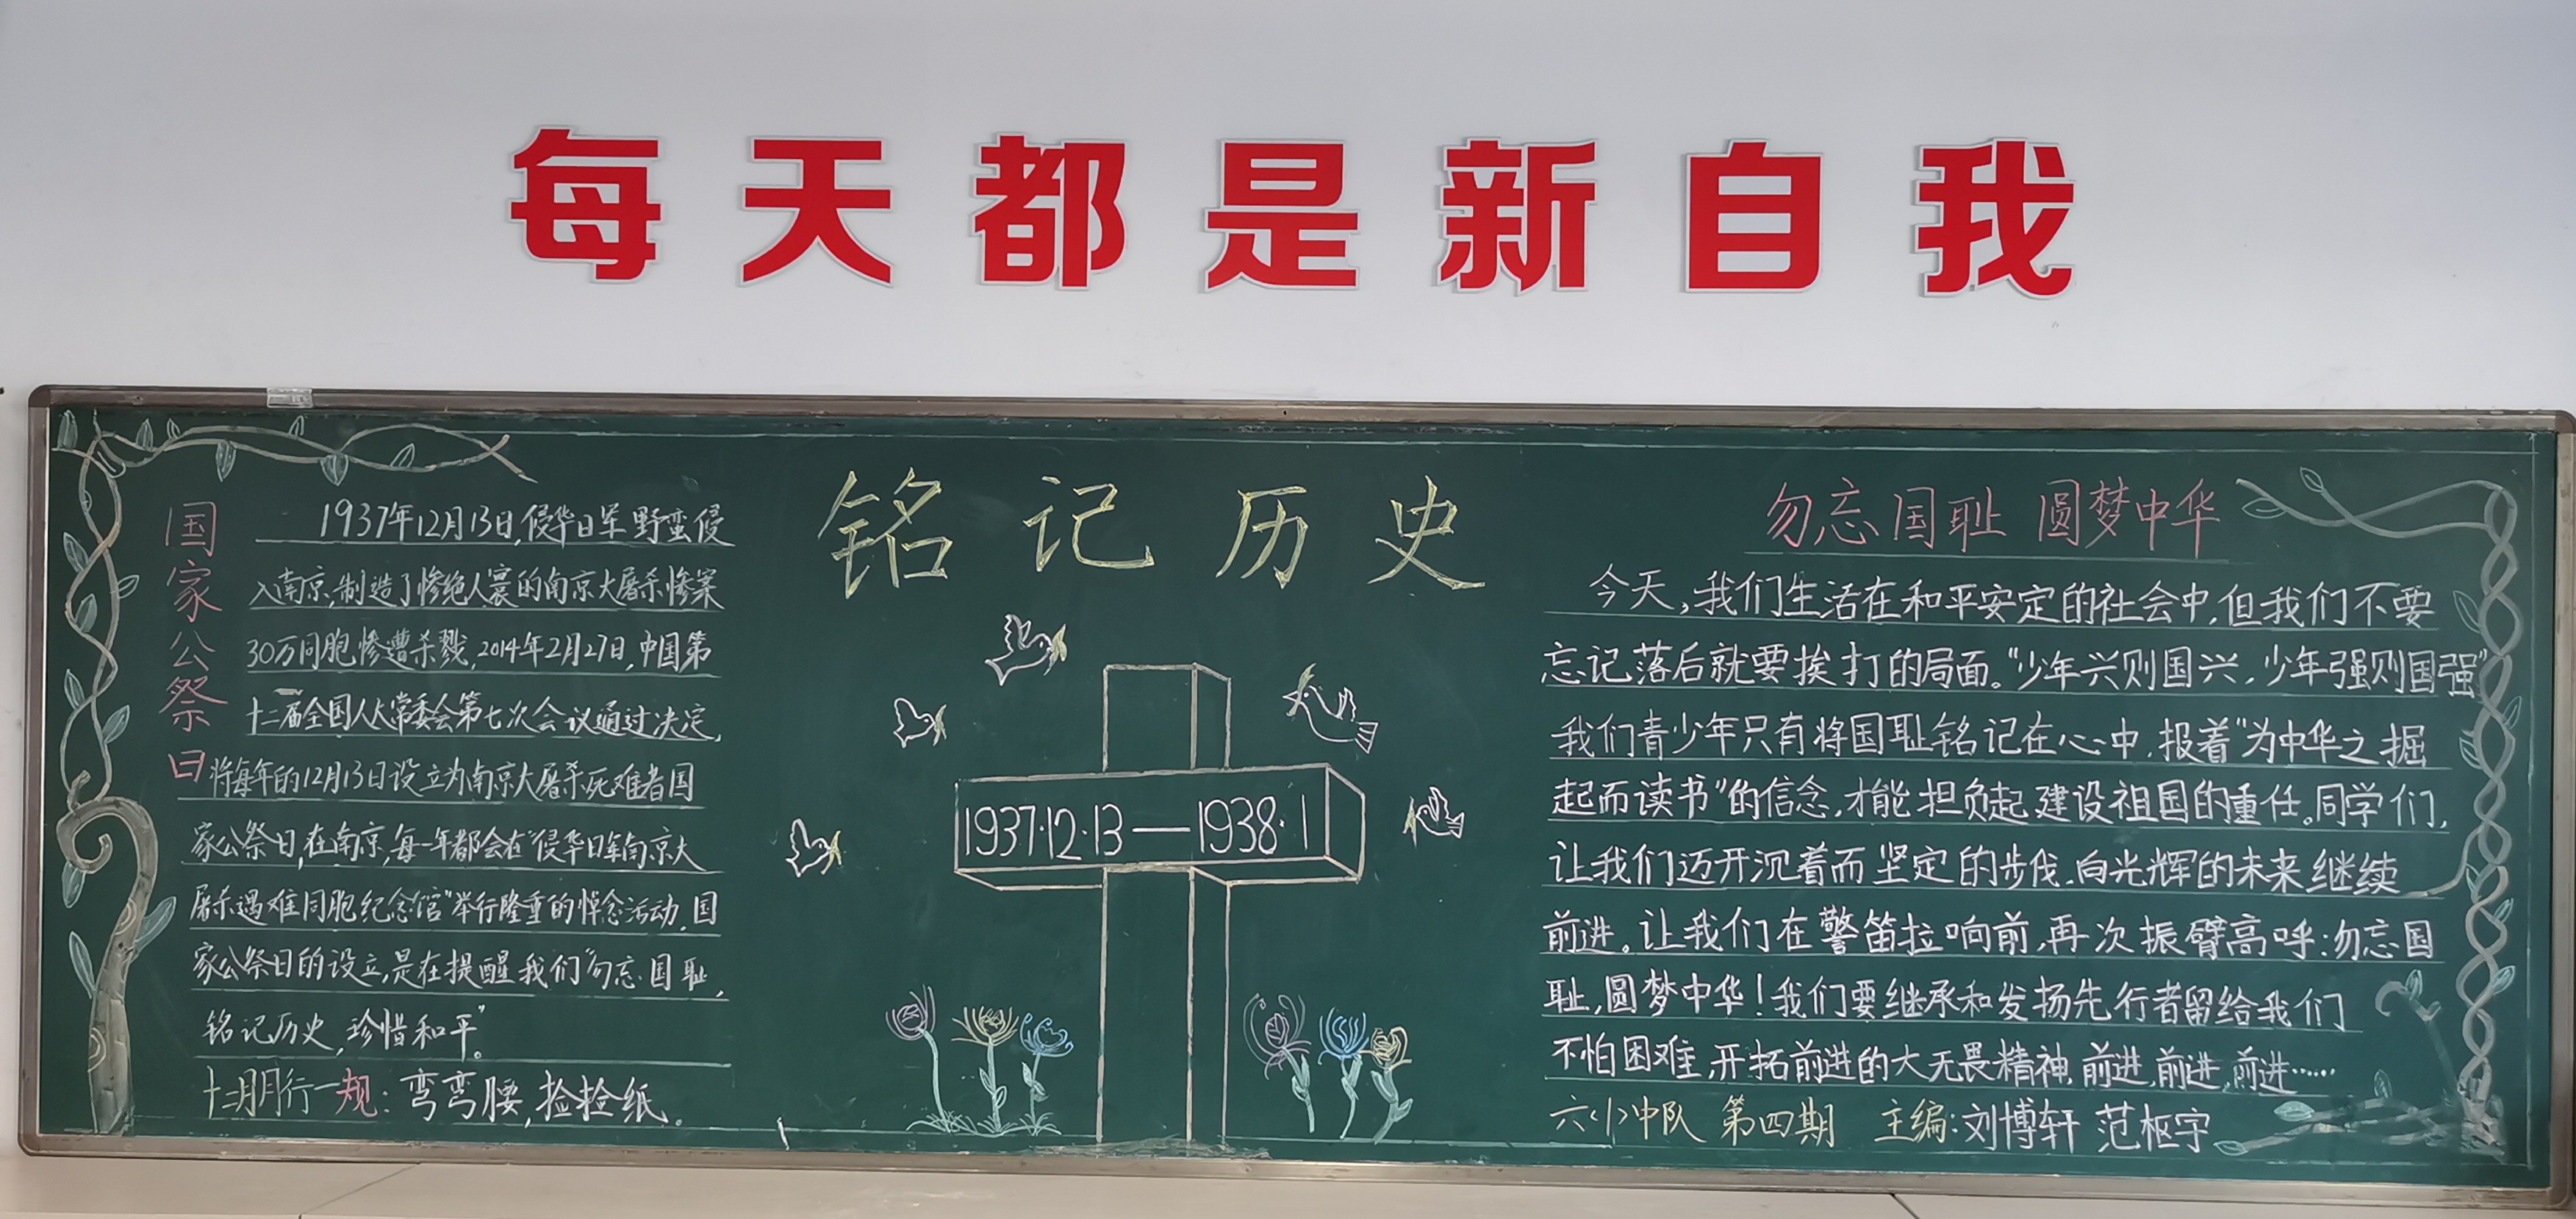 每天都是新自我
铭记历史
国家公祭日
1937年12月13日,侵华日军野蛮侵
入南京,制造了惨绝人寰的南京大屠杀惨案
30万同胞惨遭杀戮,2014年2月27日,中国第
十二届全国人大常委会第七次会议通过决定,
将每年的12月13日设立为南京大屠杀死难者国
家公祭日,在南京,每一年都会在"侵华日军南京大
屠杀遇难同胞纪念馆"举行隆重的悼念活动,国
家公祭日的设立,是在提醒我们"勿忘国耻,
铭记历史,珍惜和平"。
十二月月行一规:弯弯腰,捡捡纸。
1937·12·13—1938·1
勿忘国耻 圆梦中华
今天,我们生活在和平安定的社会中,但我们不要
忘记落后就要挨打的局面。"少年兴则国兴,少年强则国强"
我们青少年只有将国耻铭记在心中,报着"为中华之掘
起而读书"的信念,才能担负起建设祖国的重任。同学们,
让我们迈开沉着而坚定的步伐,向光辉的未来继续
前进。让我们在警笛拉响前,再次振臂高呼:勿忘国
耻,圆梦中华!我们要继承和发扬先行者留给我们
不怕困难,开拓前进的大无畏精神,前进,前进,前进……
六〈1〉中队 第四期 主编:刘博轩 范枢宇